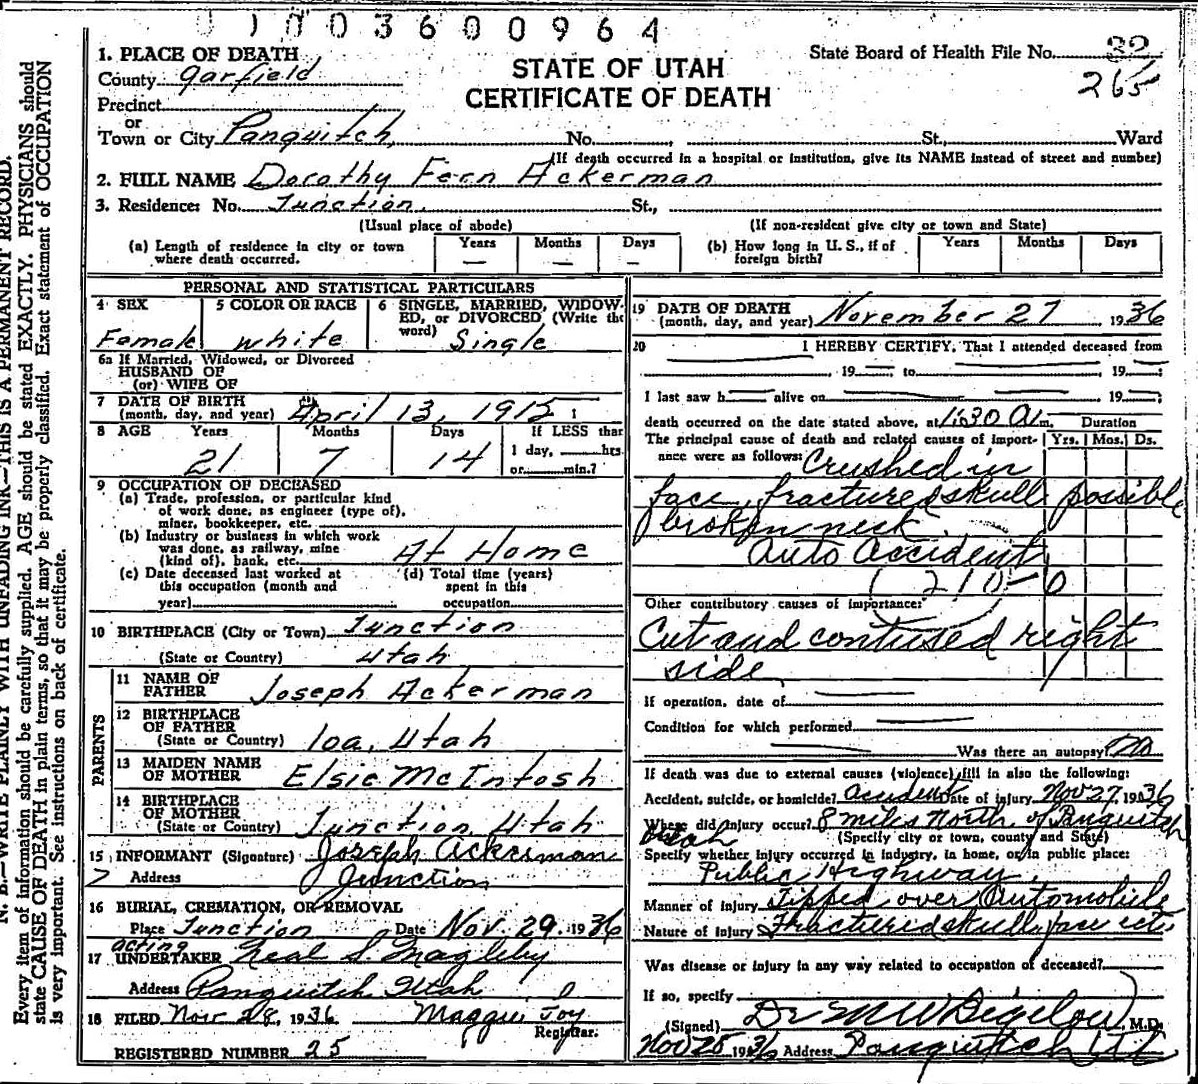 0 1 0 0 3 6 0 0 9 6 4
N. B.—WRITE PLAINLY WITH UNFADING INK—THIS IS A PERMANENT RECORD.
Every item of information should be carefully supplied. AGE should be stated EXACTLY. PHYSICIANS should
state CAUSE OF DEATH in plain terms, so that it may be properly classified. Exact statement of OCCUPATION
is very important. See instructions on back of certificate.
STATE OF UTAH
CERTIFICATE OF DEATH
State Board of Health File No. 32
265
1. PLACE OF DEATH
County Garfield
Precinct
or
Town or City Panguitch, No. , St., Ward
(If death occurred in a hospital or institution, give its NAME instead of street and number)
2. FULL NAME Dorothy Fern Ackerman
3. Residence: No. Junction. St.,
(Usual place of abode) (If non-resident give city or town and State)
(a) Length of residence in city or town where death occurred. Years — Months — Days —
(b) How long in U. S., if of foreign birth? Years Months Days
PERSONAL AND STATISTICAL PARTICULARS
4 SEX Female
5 COLOR OR RACE White
6 SINGLE, MARRIED, WIDOWED, or DIVORCED (Write the word) Single
6a If Married, Widowed, or Divorced
HUSBAND OF
(or) WIFE OF
7 DATE OF BIRTH
(month, day, and year) April 13, 1915
8 AGE Years 21 Months 7 Days 14 If LESS than
1 day, hrs.
or min.?
9 OCCUPATION OF DECEASED
(a) Trade, profession, or particular kind
of work done, as engineer (type of),
miner, bookkeeper, etc.
(b) Industry or business in which work
was done, as railway, mine
(kind of), bank, etc. At Home
(c) Date deceased last worked at
this occupation (month and
year)
(d) Total time (years)
spent in this
occupation
10 BIRTHPLACE (City or Town) Junction
(State or Country) Utah
PARENTS
11 NAME OF
FATHER Joseph Ackerman
12 BIRTHPLACE
OF FATHER
(State or Country) Loa, Utah
13 MAIDEN NAME
OF MOTHER Elsie McIntosh
14 BIRTHPLACE
OF MOTHER
(State or Country) Junction, Utah
15 INFORMANT (Signature) Joseph Ackerman
Address Junction
16 BURIAL, CREMATION, OR REMOVAL
Place Junction Date Nov. 29, 1936
acting
17 UNDERTAKER Neal S. Magleby
Address Panguitch Utah
18 FILED Nov 28, 1936 Maggie Joy
Registrar.
REGISTERED NUMBER 25
19 DATE OF DEATH
(month, day, and year) November 27 1936
20 I HEREBY CERTIFY, That I attended deceased from
, 19 to , 19 ;
I last saw h alive on , 19 ;
death occurred on the date stated above, at 1:30 A.m. Duration
The principal cause of death and related causes of importance were as follows: Yrs. Mos. Ds.
Crushed in
face, fractured skull possible
broken neck.
Auto Accident
(210-0
Other contributory causes of importance:
Cut and contused right
side
If operation, date of
Condition for which performed
Was there an autopsy? no
If death was due to external causes (violence) fill in also the following:
Accident, suicide, or homicide? Accident Date of injury Nov 27, 1936
Where did injury occur? 8 miles North of Panguitch
Utah (Specify city or town, county and State)
Specify whether injury occurred in industry, in home, or in public place:
Public Highway.
Manner of injury Tipped over Automobile
Nature of injury Fractured skull, face etc.
Was disease or injury in any way related to occupation of deceased?
If so, specify
(Signed) Dr S M W Bigelow, M.D.
Nov 28 1936 Address Panguitch Ut